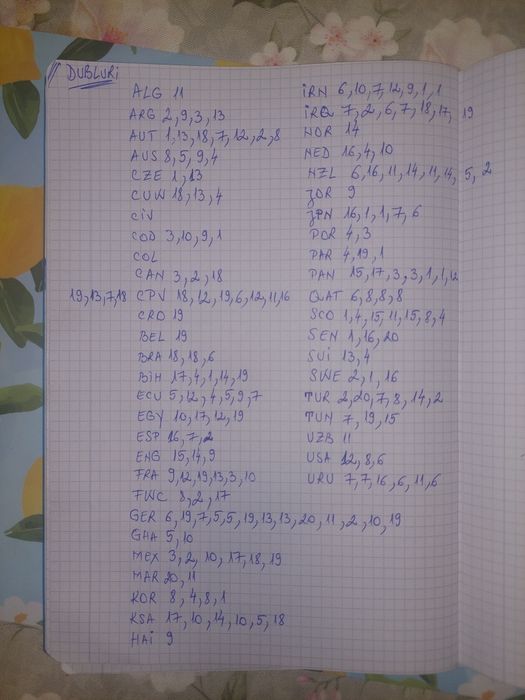 DUBLURI
ALG 11
ARG 2,9,3,13
AUT 1,13,18,7,12,2,8
AUS 8,5,9,4
CZE 1,13
CUW 18,13,4
CIV
COD 3,10,9,1
COL
CAN 3,2,18
19,13,7,18 CPV 18,12,19,6,12,11,16
CRO 19
BEL 19
BRA 18,18,6
BiH 17,4,1,14,19
ECU 5,12,4,5,9,7
EGY 10,17,12,19
ESP 16,7,2
ENG 15,14,9
FRA 9,12,19,13,3,10
FWC 8,2,17
GER 6,19,7,5,5,19,13,13,20,11,2,10,19
GHA 5,10
MEX 3,2,10,17,18,19
MAR 20,11
KOR 8,4,8,1
KSA 17,10,14,10,5,18
HAi 9
iRN 6,10,7,12,9,1,1
iRQ 7,2,6,7,18,17,19
NOR 14
NED 16,4,10
NZL 6,16,11,14,11,14,5,2
JOR 9
JPN 16,1,1,7,6
POR 4,3
PAR 4,19,1
PAN 15,17,3,3,1,1,12
QUAT 6,8,8,8
SCO 1,4,15,11,15,8,4
SEN 1,16,20
SUi 13,4
SWE 2,1,16
TUR 2,20,7,8,14,2
TUN 7,19,15
UZB 11
USA 12,8,6
URU 7,7,16,6,11,6